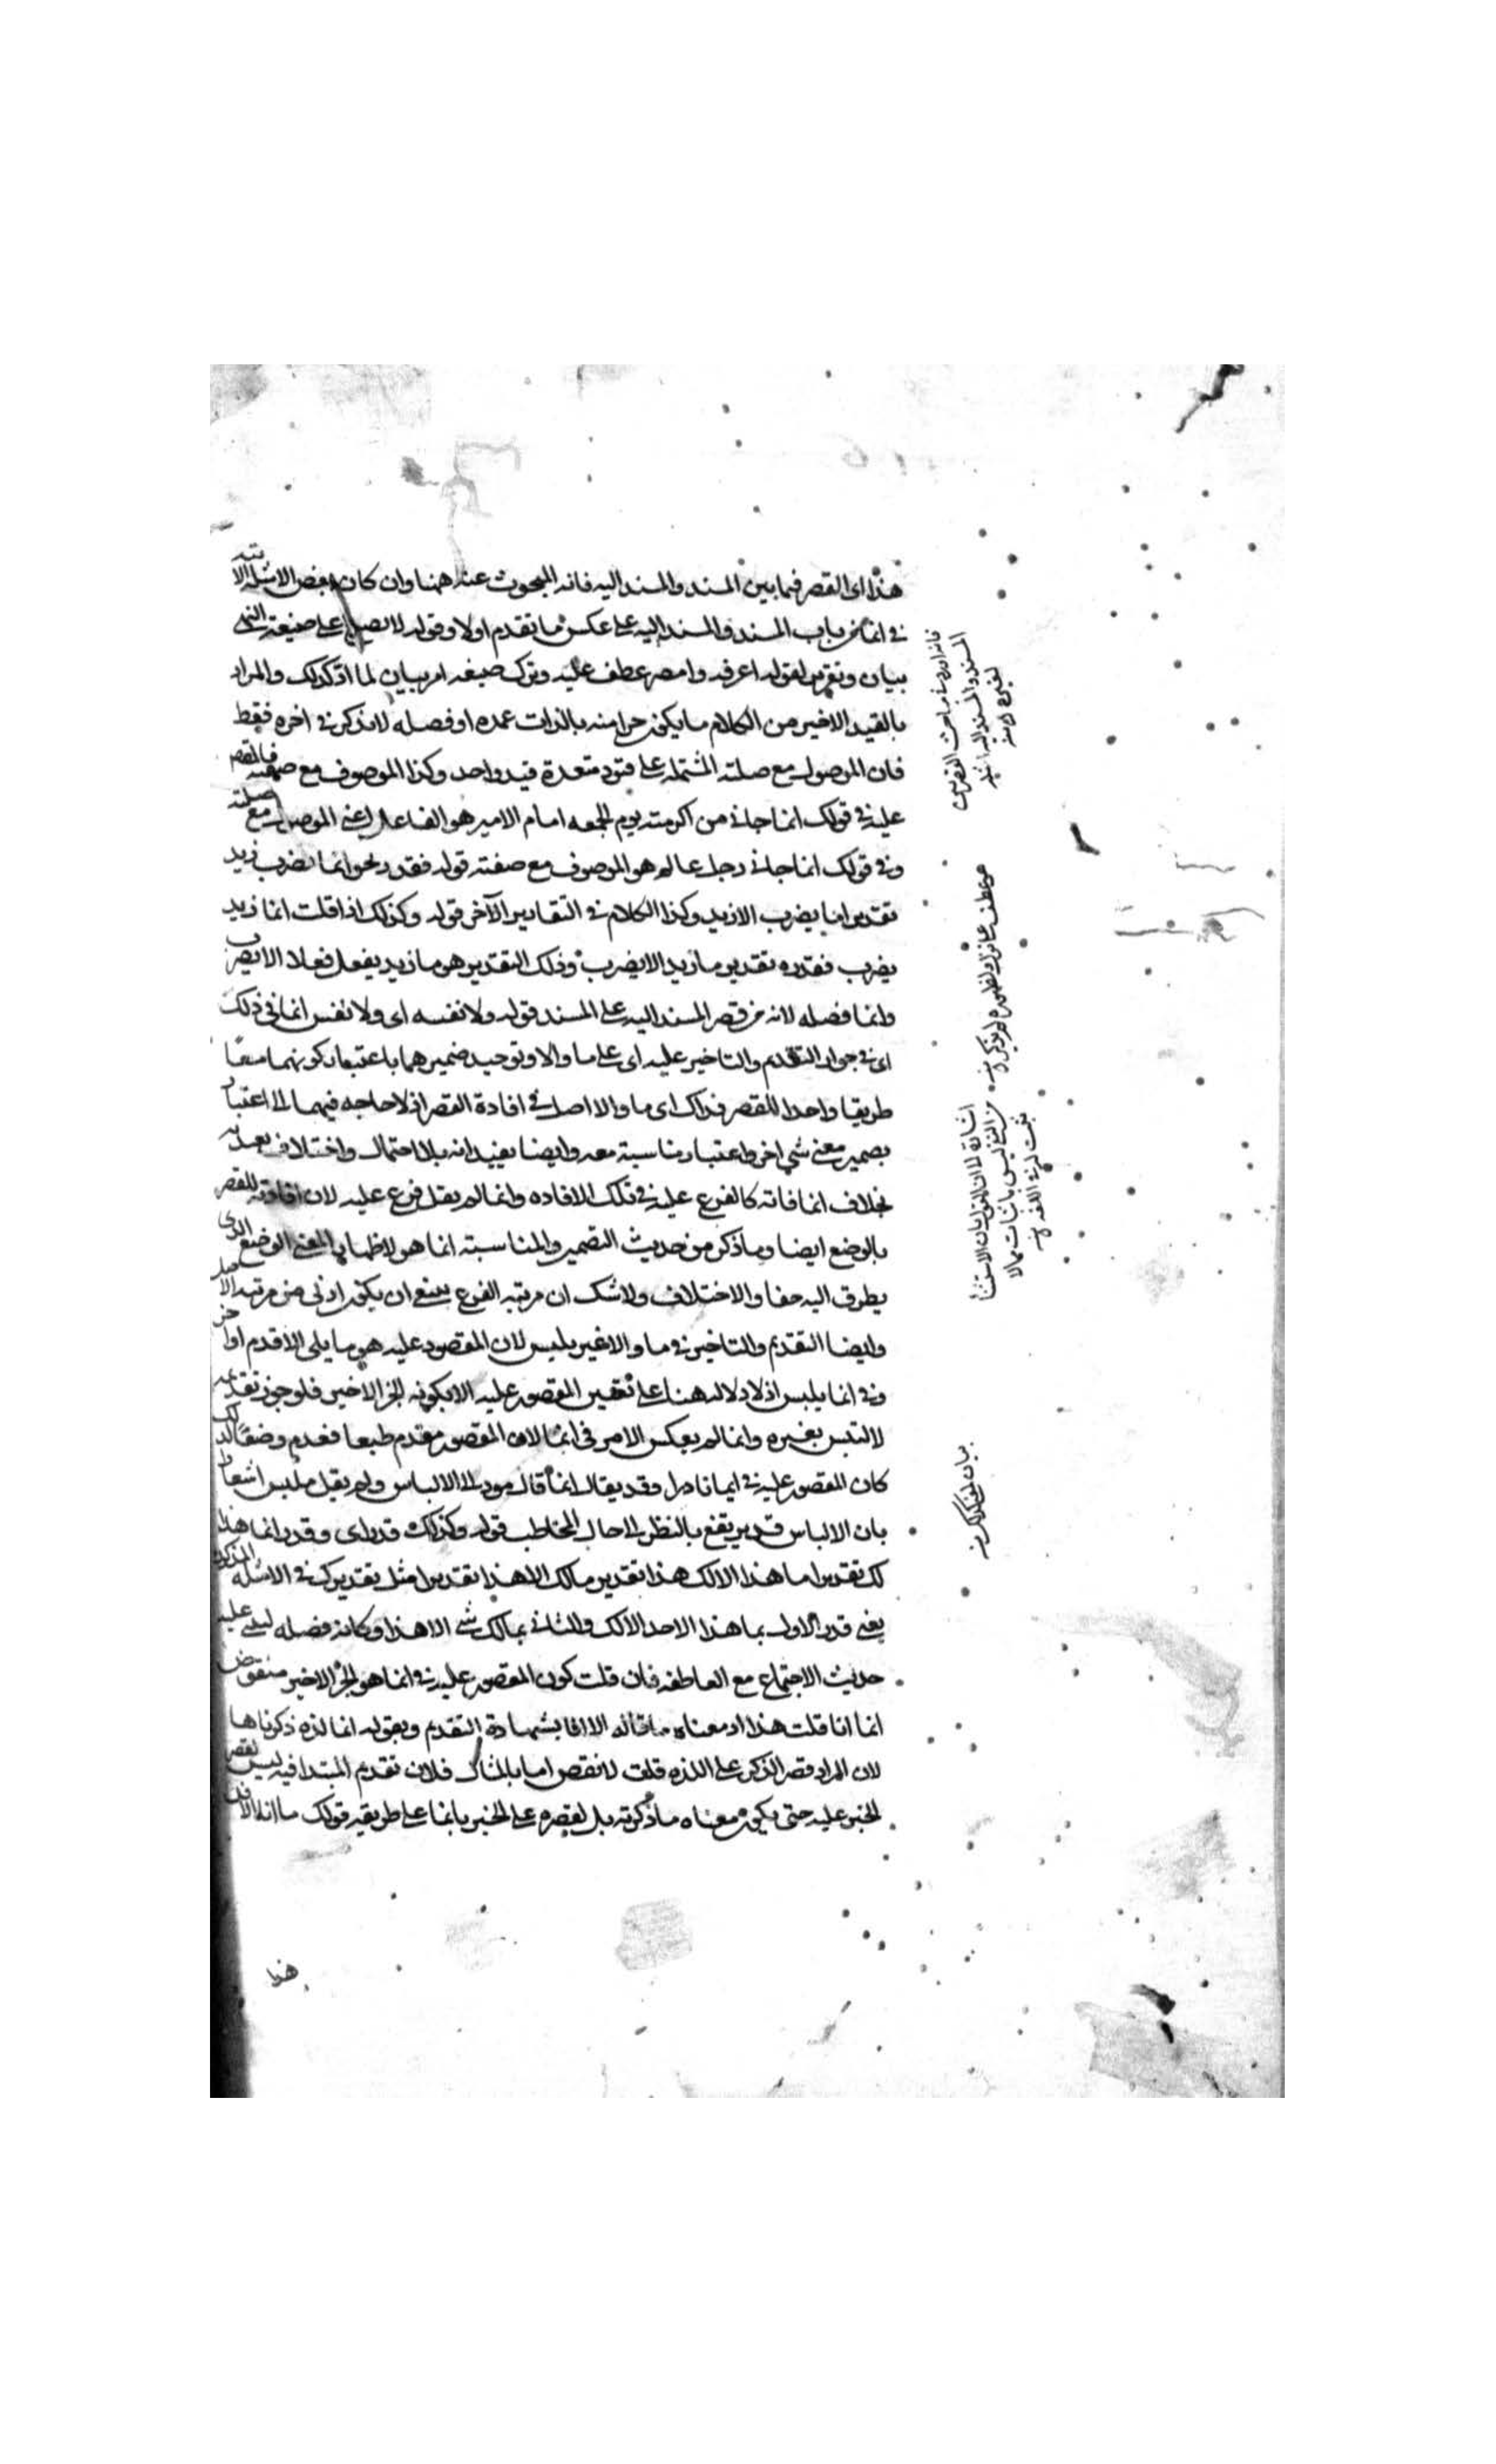 هذا اى القصر فيما بين المسند والمسند اليه فانه المبحوث عنه ههنا وان كان بعض الاسئلة الاتيه
في انما من باب المسند والمسند اليه على عكس ما تقدم اولا وقوله لا نصبه على صيغة النهى
بيان وتقرير لقوله اعرفه وامصر عطف عليه وترك صيغه امر بيان لما اذكر لك والمراد
بالقيد الاخير من الكلام ما يكون جزا منه بالذات عمده او فضله لا ما يذكر في اخره فقط
فان الموصول مع صلته المشتمله على قيود متعددة قيد واحد وكذا الموصوف مع صفته فالمقصور
عليه في قولك انما جاءني من اكرمته يوم الجمعه امام الامير هو الفاعل اعنى الموصول مع صلته
وفي قولك انما جاءني رجل عالم هو الموصوف مع صفته قوله فقدر نحو انما يضرب زيد
تقدير ما يضرب الا زيد وكذا الكلام في التقادير الاخر قوله وكذلك اذا قلت انما زيد
يضرب فقدره تقدير ما زيد الا يضرب وذلك التقدير هو ما زيد يفعل فعلا الا يضرب
وانما فصله لانه من قصر المسند اليه على المسند قوله ولا نفسه اى ولا نفس انما في ذلك
اى في جواز التقديم والتاخير عليه اى على ما والا وتوحيد ضميرهما باعتبار كونهما معا
طريقا واحدا للقصر فذاك اى ما والا اصل في افادة القصر اذ لا حاجه فيهما الى اعتبار
تضمير معنى شي اخر واعتبار مناسبة معه وايضا يفيدانه بلا احتمال واختلاف
بخلاف انما فانه كالفرع عليه في تلك الافاده وانما لم يقل فرع عليه لان افادته للقصر
بالوضع ايضا وما ذكر من حديث التضمير والمناسبة انما هو لاظهار المعنى الوضعى الذى
يطرق اليه خفا والاختلاف ولا شك ان مرتبه الفرع ينبغى ان يكون ادنى من مرتبه الاصل
وايضا التقديم والتاخير في ما والا غير ملبس لان المقصور عليه هو ما يلى الا قدم او اخر
وفي انما يلبس اذ لا دلاله هنا على تعيين المقصور عليه الا بكونه الجز الاخير فلو جوز تقديمه
لالتبس بغيره وانما لم يعكس الامر في انما لان المقصور مقدم طبعا فقدم وضعا لذلك
كان المقصور عليه في نادرا وقد يقال انما قال مود الى الالباس ولم يقل ملبس اشعارا
بان الالباس قد يرتفع بالنظر الى حال المخاطب قوله وكذلك قدر اى وقدر انما هذا
لك تقدير ما هذا الا لك هذا تقدير ما لك الا هذا تقديرا مثل تقديرك في الاسئلة المذكورة
يعنى قدر الاول بما هذا لاحد الا لك والثاني بما لك شى الا هذا وكانه فصله ليبنى عليه
حديث الاجتماع مع العاطفه فان قلت كون المقصور عليه في انما هو الجز الاخير منتقض
انما انا قلت هذا اذ معناه ما قاله الا انا بشهادة التقديم وبقوله انما لذة ذكرناها
لان المراد قصر الذكر على اللذه قلت لا نقض اما بالمثال فلان تقديم المبتدا فيه ليس لقصر
الخبر عليه حتى يكون معناه ما ذكرته بل لقصره على الخبر بانما على طريقه قولك ما انا الا
هذا
فانه اورده في مباحث التقديم بين
المسند والمسند اليه اشياء
اشارة الى ان القول بان الاستثنا
من النفى ليس باثبات مما لا
يثبت لدى اللغه منه
بيان لمتكلم منه